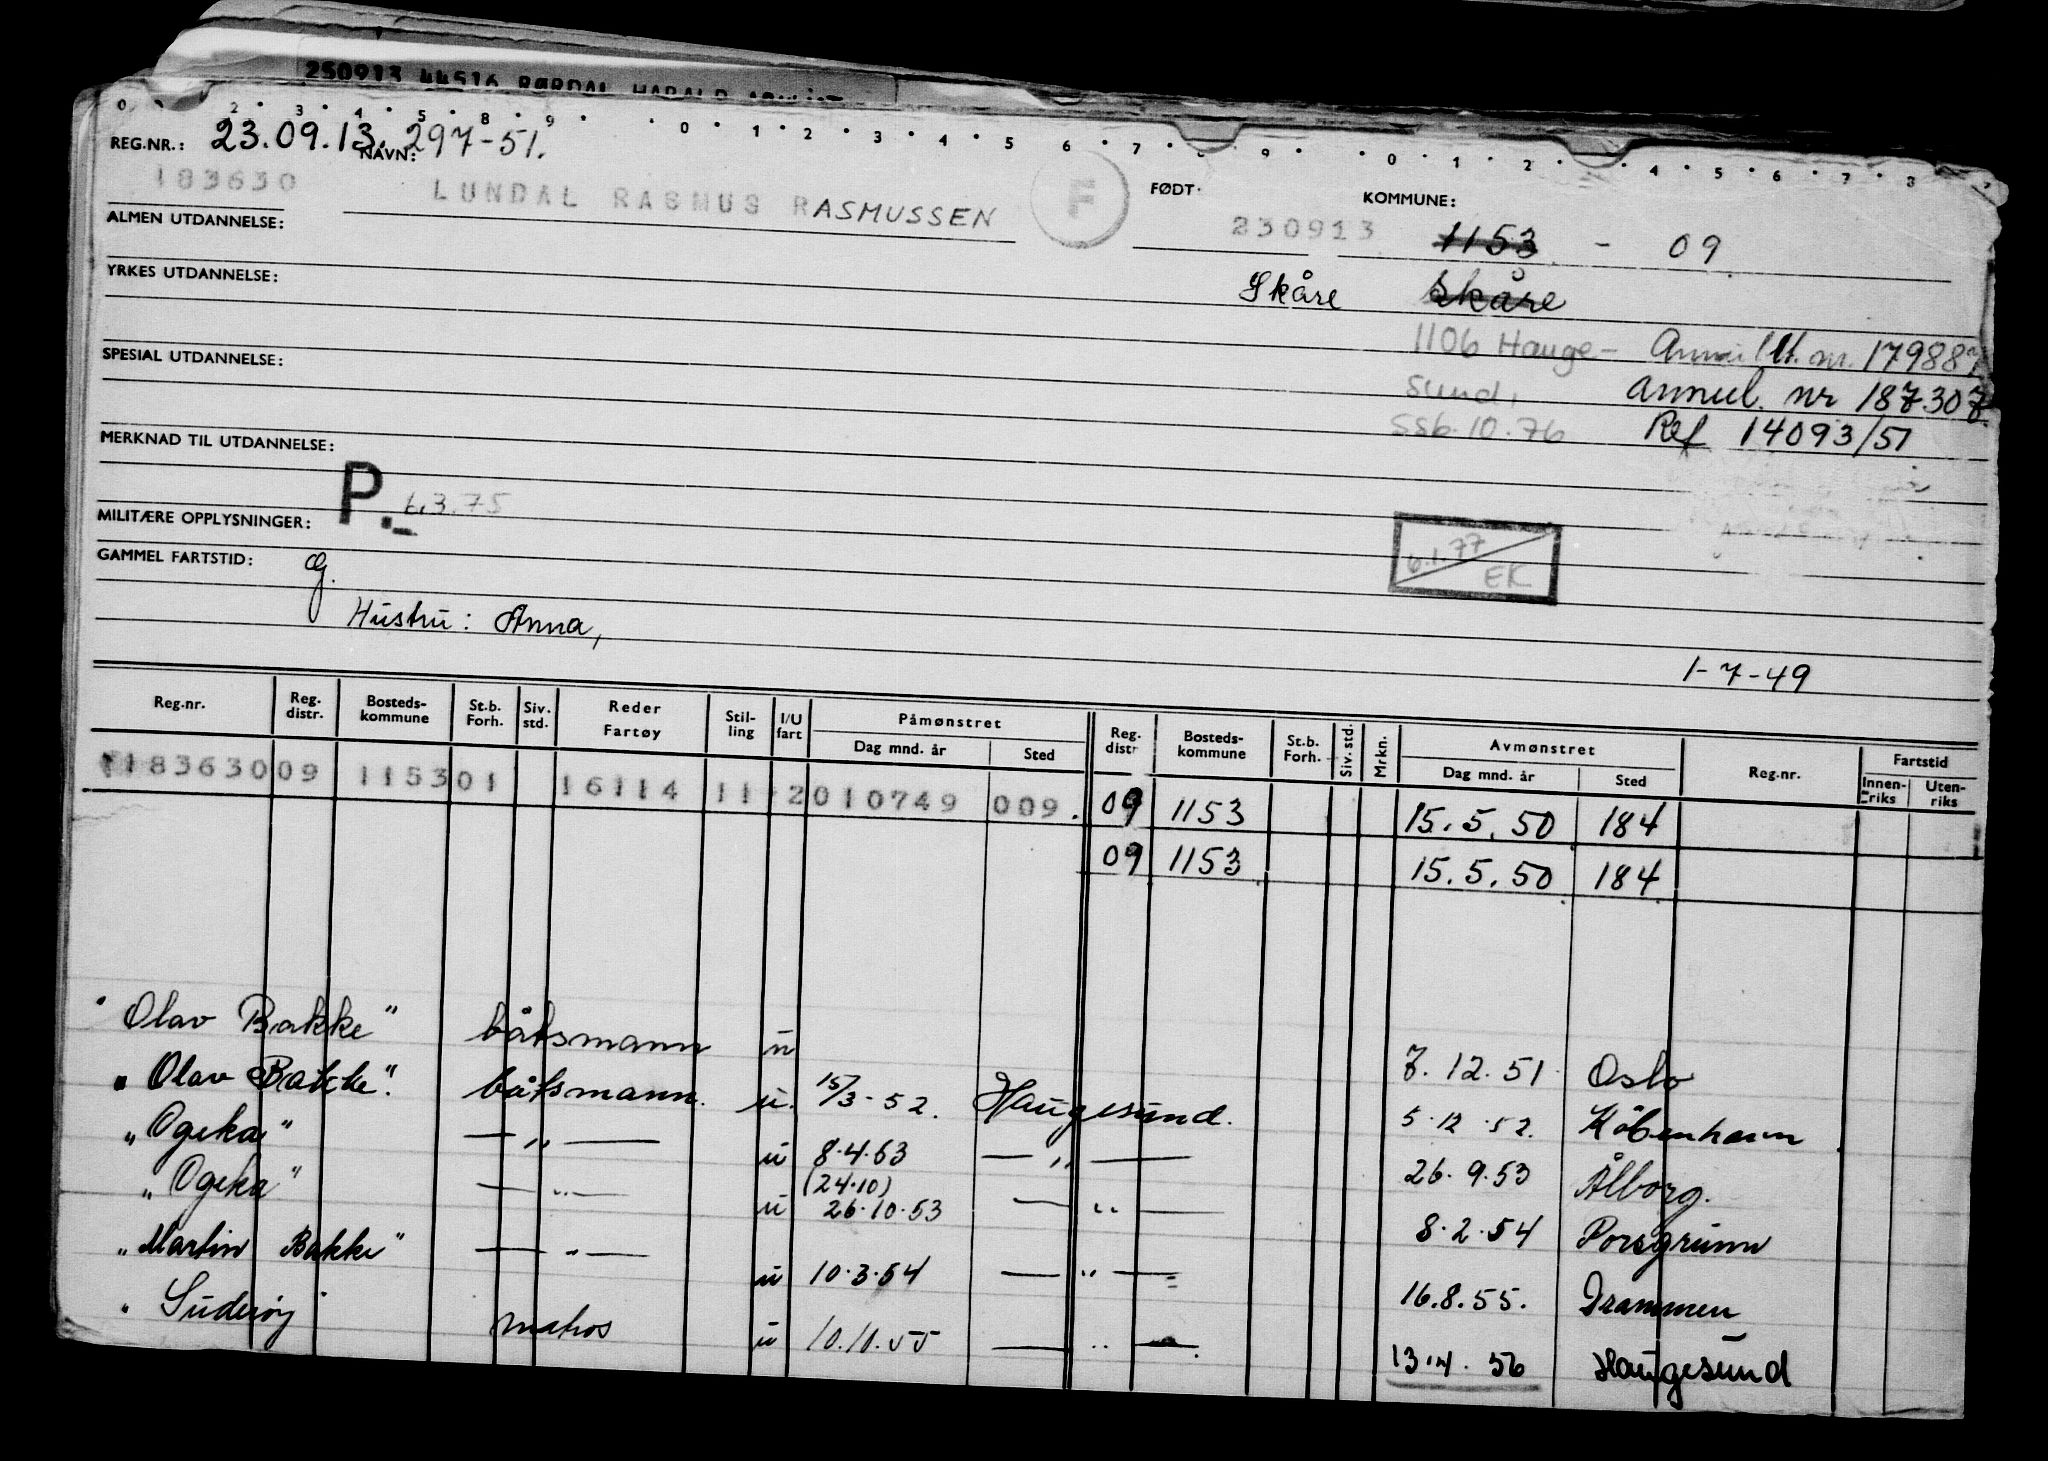 250913 44516 RØRDAL HARALD
0 2 3 4 5 8 9 0 1 2 3 4 5 6 7 8 9 0 1 2 4 5 6 7 8
REG.NR.: 23.09.13. NAVN: 297-51.
183630 LUNDAL RASMUS RASMUSSEN F FØDT· 230913 KOMMUNE: 1153 - 09
ALMEN UTDANNELSE:
YRKES UTDANNELSE: Skåre Skåre
1106 Hauge- Annull. nr. 179887
SPESIAL UTDANNELSE: sund, Annul. nr 187307
SSB.10.76 Ref 14093/51
MERKNAD TIL UTDANNELSE:
P.- 6.3.75
MILITÆRE OPPLYSNINGER: 6.1.77
EK
GAMMEL FARTSTID: g.
Hustru: Anna,
1-7-49
Reg.nr. Reg. distr. Bosteds-kommune St.b. Forh. Siv. std. Reder Fartøy Stil-ling I/U fart Påmønstret Dag mnd. år Sted Reg. distr Bosteds-kommune St.b. Forh. Siv. std. Mrkn. Avmønstret Dag mnd. år Sted Reg.nr. Fartstid Innen-riks Uten-riks
183630 09 1153 01 16114 11 2 010749 009. 09 1153 15.5.50 184
09 1153 15.5.50 184
"Olav Bakke" båtsmann u 7.12.51 Oslo
"Olav Bakke". båtsmann. u. 15/3-52. Haugesund. 5.12.52. København
"Ogeka" — „ — u 8.4.53 — „ — 26.9.53 Ålborg.
(24.10)
"Ogeka" — „ — u 26.10.53 — „ — 8.2.54 Porsgrunn
"Martin Bakke" — „ — u 10.3.54 — „ — 16.8.55. Drammen
"Suderøy" matros u 10.10.55 — „ — 13.4.56 Haugesund